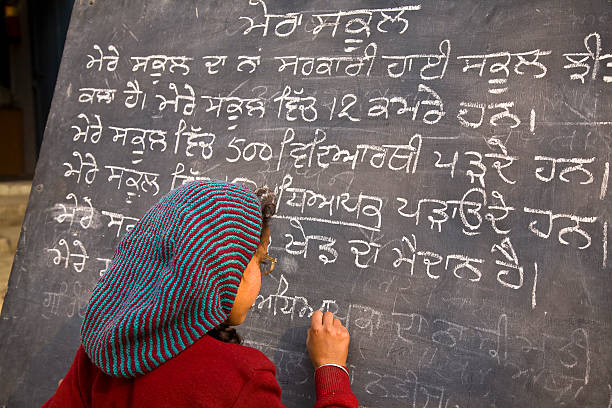 ਮੇਰਾ ਸਕੂਲ
ਮੇਰੇ ਸਕੂਲ ਦਾ ਨਾਂ ਸਰਕਾਰੀ ਹਾਈ ਸਕੂਲ
ਕਲਾਂ ਹੈ। ਮੇਰੇ ਸਕੂਲ ਵਿੱਚ 12 ਕਮਰੇ ਹਨ।
ਮੇਰੇ ਸਕੂਲ ਵਿੱਚ 500 ਵਿਦਿਆਰਥੀ ਪੜਦੇ ਹਨ।
ਮੇਰੇ ਸਕੂਲ ਅਧਿਆਪਕ ਪੜਾਉਦੇ ਹਨ।
ਮੇਰੇ ਸ ਖੇਡ ਦਾ ਮੈਦਾਨ ਹੈ।
ਮੇਰੇ ਅਧਿਆ